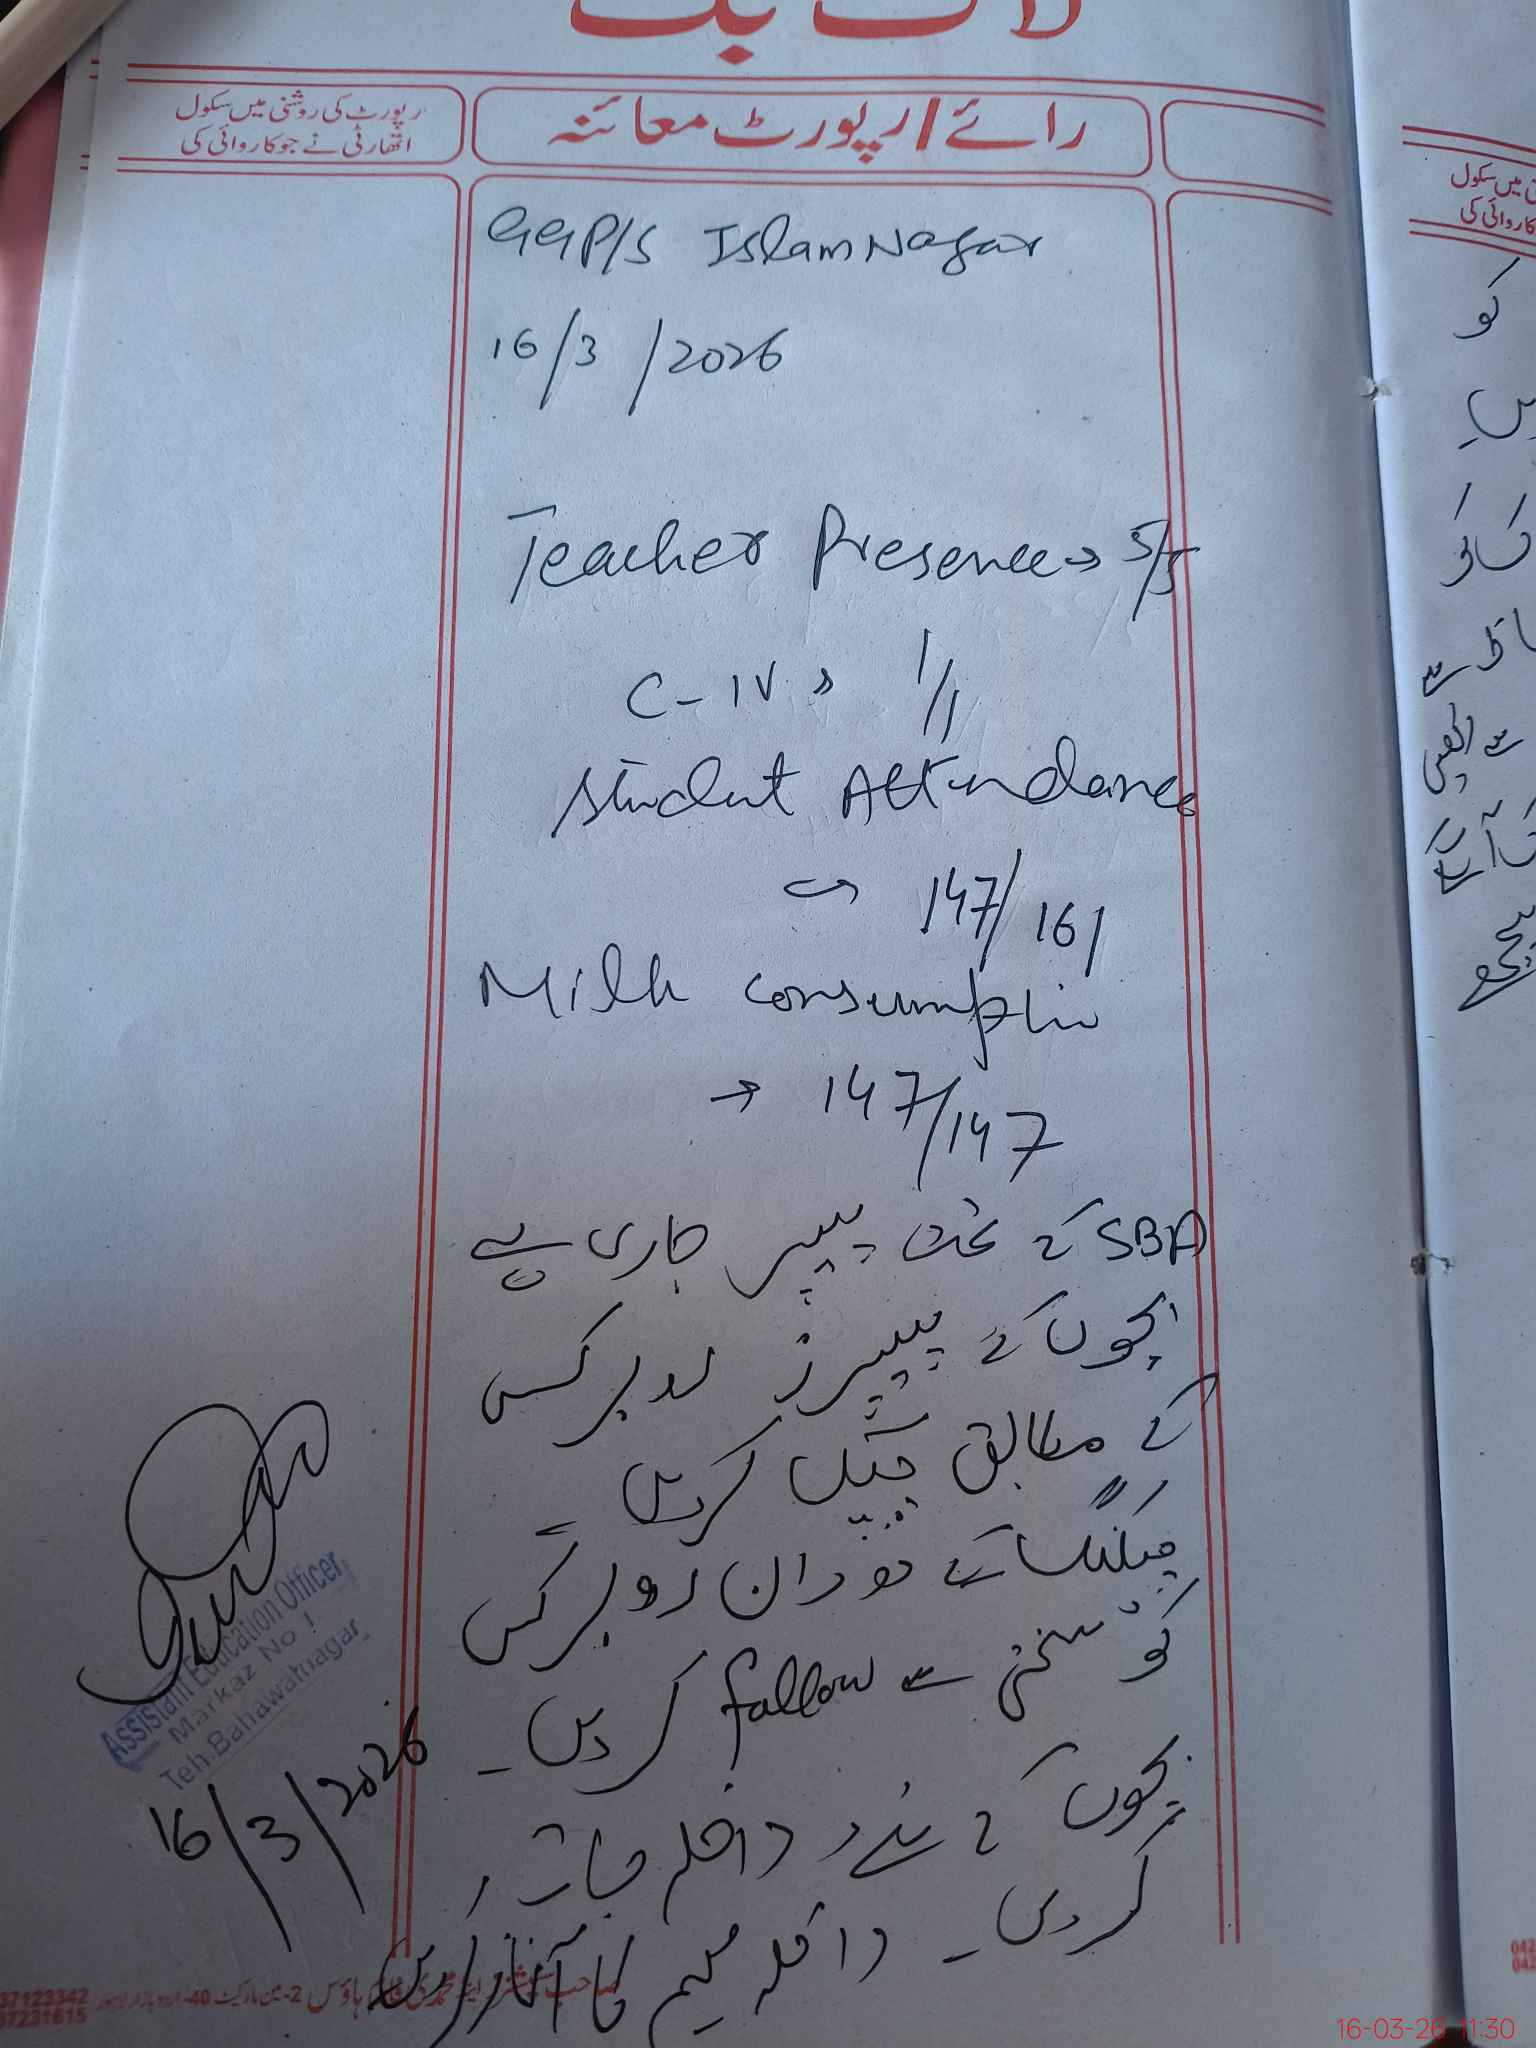 لاگ بک
رائے/رپورٹ معائنہ
رپورٹ کی روشنی میں سکول
اتھارٹی نے جو کاروائی کی
GGP/S Islam Nagar
16/3/2026
Teacher Presence → 5/5
C-IV → 1/1
Student Attendance
→ 147/161
Milk consumption
→ 147/147
SBA کے تحت پیپر جاری ہے
بچوں کے پیپرز روبرکس
کے مطابق چیک کریں
چیکنگ کے دوران روبرکس
کو سختی سے follow کریں۔
بچوں کے نئے داخلہ جات
کریں۔ داخلہ مہم کا آغاز کریں
Assistant Education Officer
Markaz No 1
Teh. Bahawalnagar
16/3/2026
37123342
37231615
میں سکول
کاروائی کی
کو
سے
16-03-26 11:30